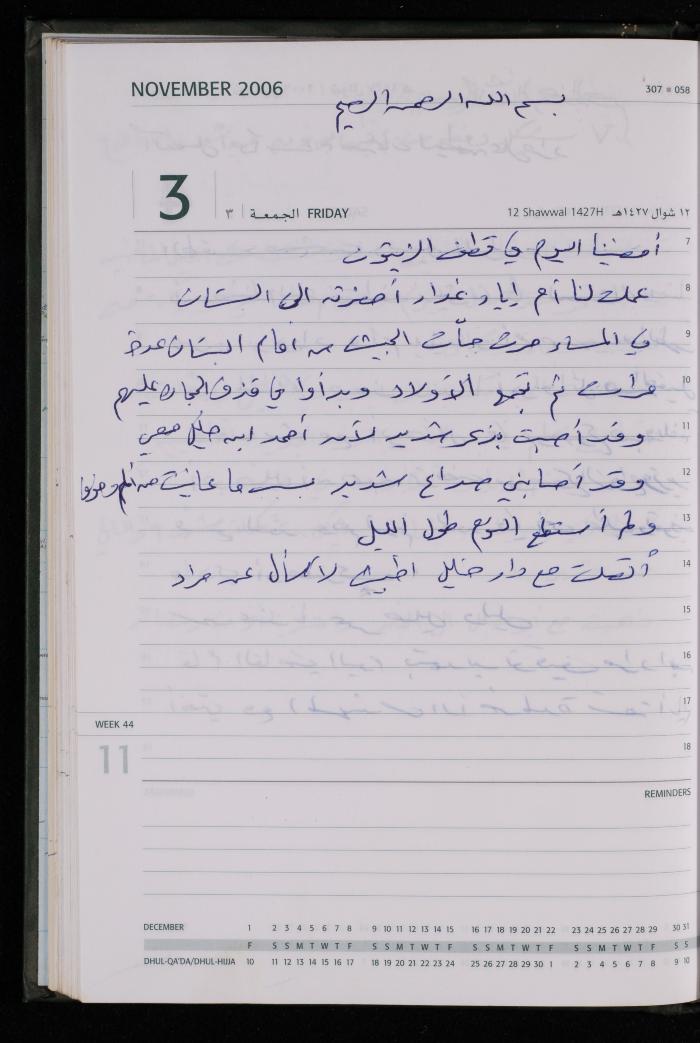 NOVEMBER 2006
307 058
بسم الله الرحمن الرحيم
3 ٣ الجمعة FRIDAY 12 Shawwal 1427H ١٢ شوال ١٤٢٧هـ
7 أمضينا اليوم في قطف الزيتون
8 عملت لنا أم اياد غداء أحضرته الى البستان
9 في المساء مرت جيبات الجيش من أمام البستان عدة
10 مرات ثم تجمع الأولاد وبدأوا في قذف الحجارة عليهم
11 وقد أصبت بذعر شديد لأن أحمد ابن خليل معي
12 وقد أصابني صداع شديد بسبب ما عانيت من ألم وخوف
13 ولم أستطع النوم طول الليل
14 أتصلت مع دار خليل لأسأل عن مراد
15
16
17
WEEK 44
11
18
REMINDERS
DECEMBER 1 2 3 4 5 6 7 8 9 10 11 12 13 14 15 16 17 18 19 20 21 22 23 24 25 26 27 28 29 30 31
F S S M T W T F S S M T W T F S S M T W T F S S M T W T F S S
DHUL-QA'DA/DHUL-HIJJA 10 11 12 13 14 15 16 17 18 19 20 21 22 23 24 25 26 27 28 29 30 1 2 3 4 5 6 7 8 9 10